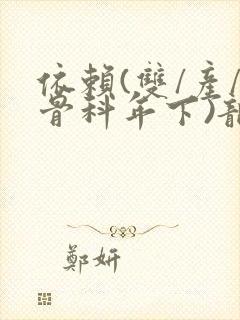 依賴(雙/產/
骨科年下)
鄭妍